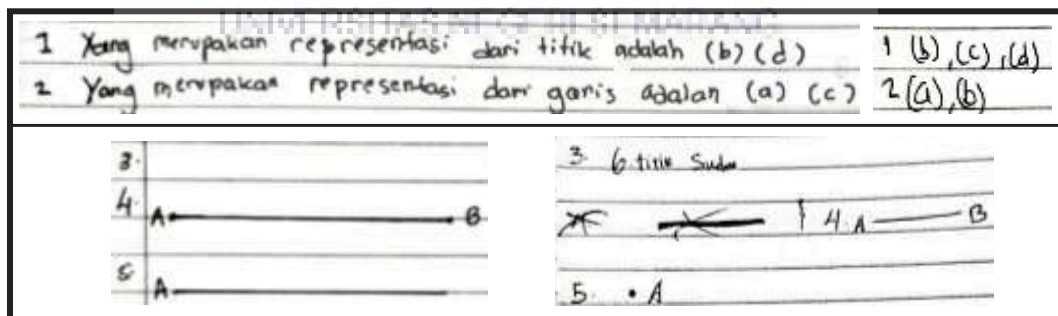 1 Yang merupakan representasi dari titik adalah (b) (d)
2 Yang merupakan representasi dari garis adalah (a) (c)
1 (b), (c), (d)
2 (a), (b)
3.
4. A B
5. A
3. 6 titik Sudut
4 A B
5. • A